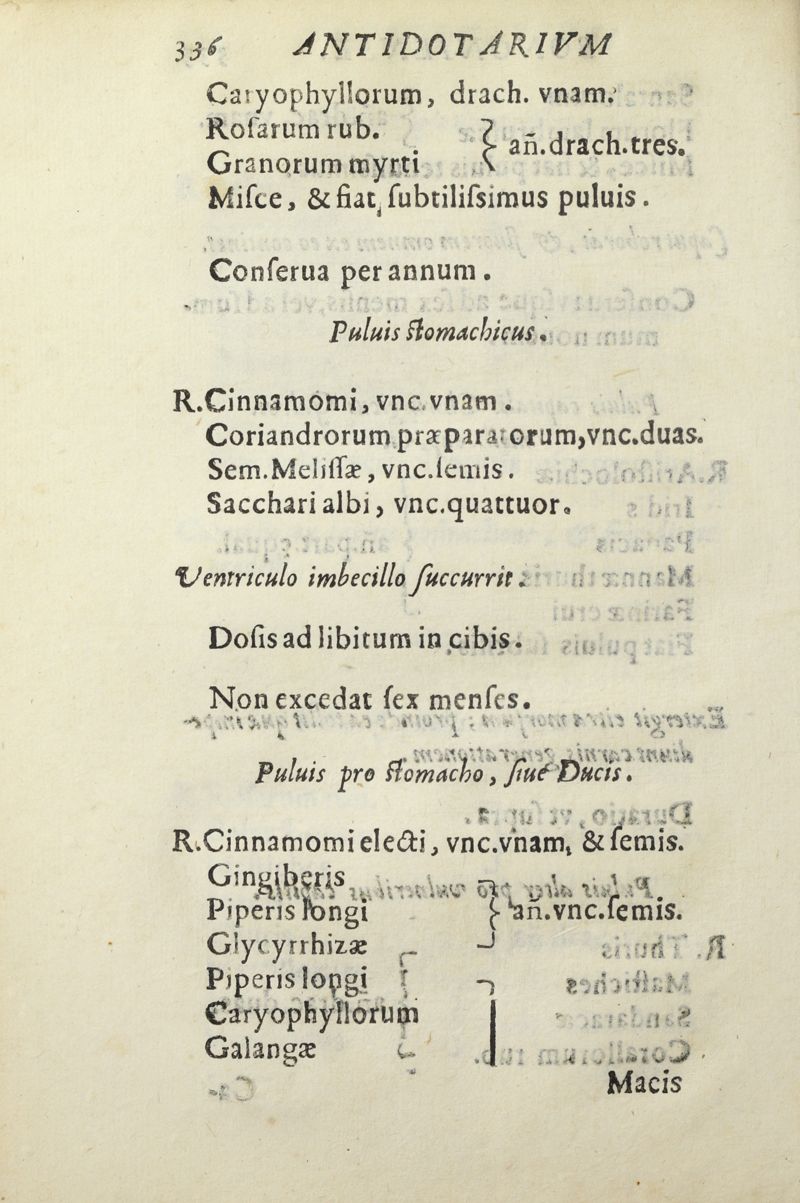 336 ANTIDOTARIVM
Caryophyllorum, drach. vnam.
Roſarum rub.
Granorum myrti
añ.drach.tres.
Miſce, & fiat ſubtiliſsimus puluis.
Conſerua per annum.
Puluis ſtomachicus.
R.Cinnamomi, vnc.vnam.
Coriandrorum præparatorum, vnc.duas.
Sem.Meliſſæ, vnc.ſemis.
Sacchari albi, vnc.quattuor.
Ventriculo imbecillo ſuccurrit.
Doſis ad libitum in cibis.
Non excedat ſex menſes.
Puluis pro ſtomacho, ſiue Ducis.
R.Cinnamomi electi, vnc.vnam, & ſemis.
Gingiberis
Piperis longi
añ.vnc.ſemis.
Glycyrrhizæ
Piperis longi
Caryophyllorum
Galangæ
Macis